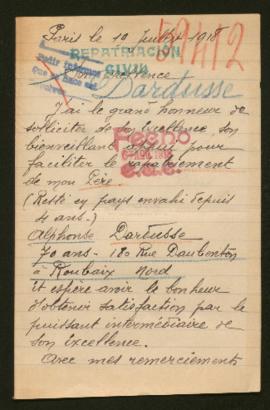 Paris le 12 Juillet 1918
59412
REPATRIACIÓN
CIVIL
Excellence
Dardusse
J'ai le grand honneur de
solliciter de son Excellence son
bienveillant appui pour
faciliter le rapatriement
de mon Père
(Resté en pays envahi depuis
4 ans.)
Alphonse Dardusse
70 ans - 180 Rue Daubenton
à Roubaix Nord
et espère avoir le bonheur
d'obtenir satisfaction par le
puissant intermédiaire de
son Excellence.
Avec mes remerciements